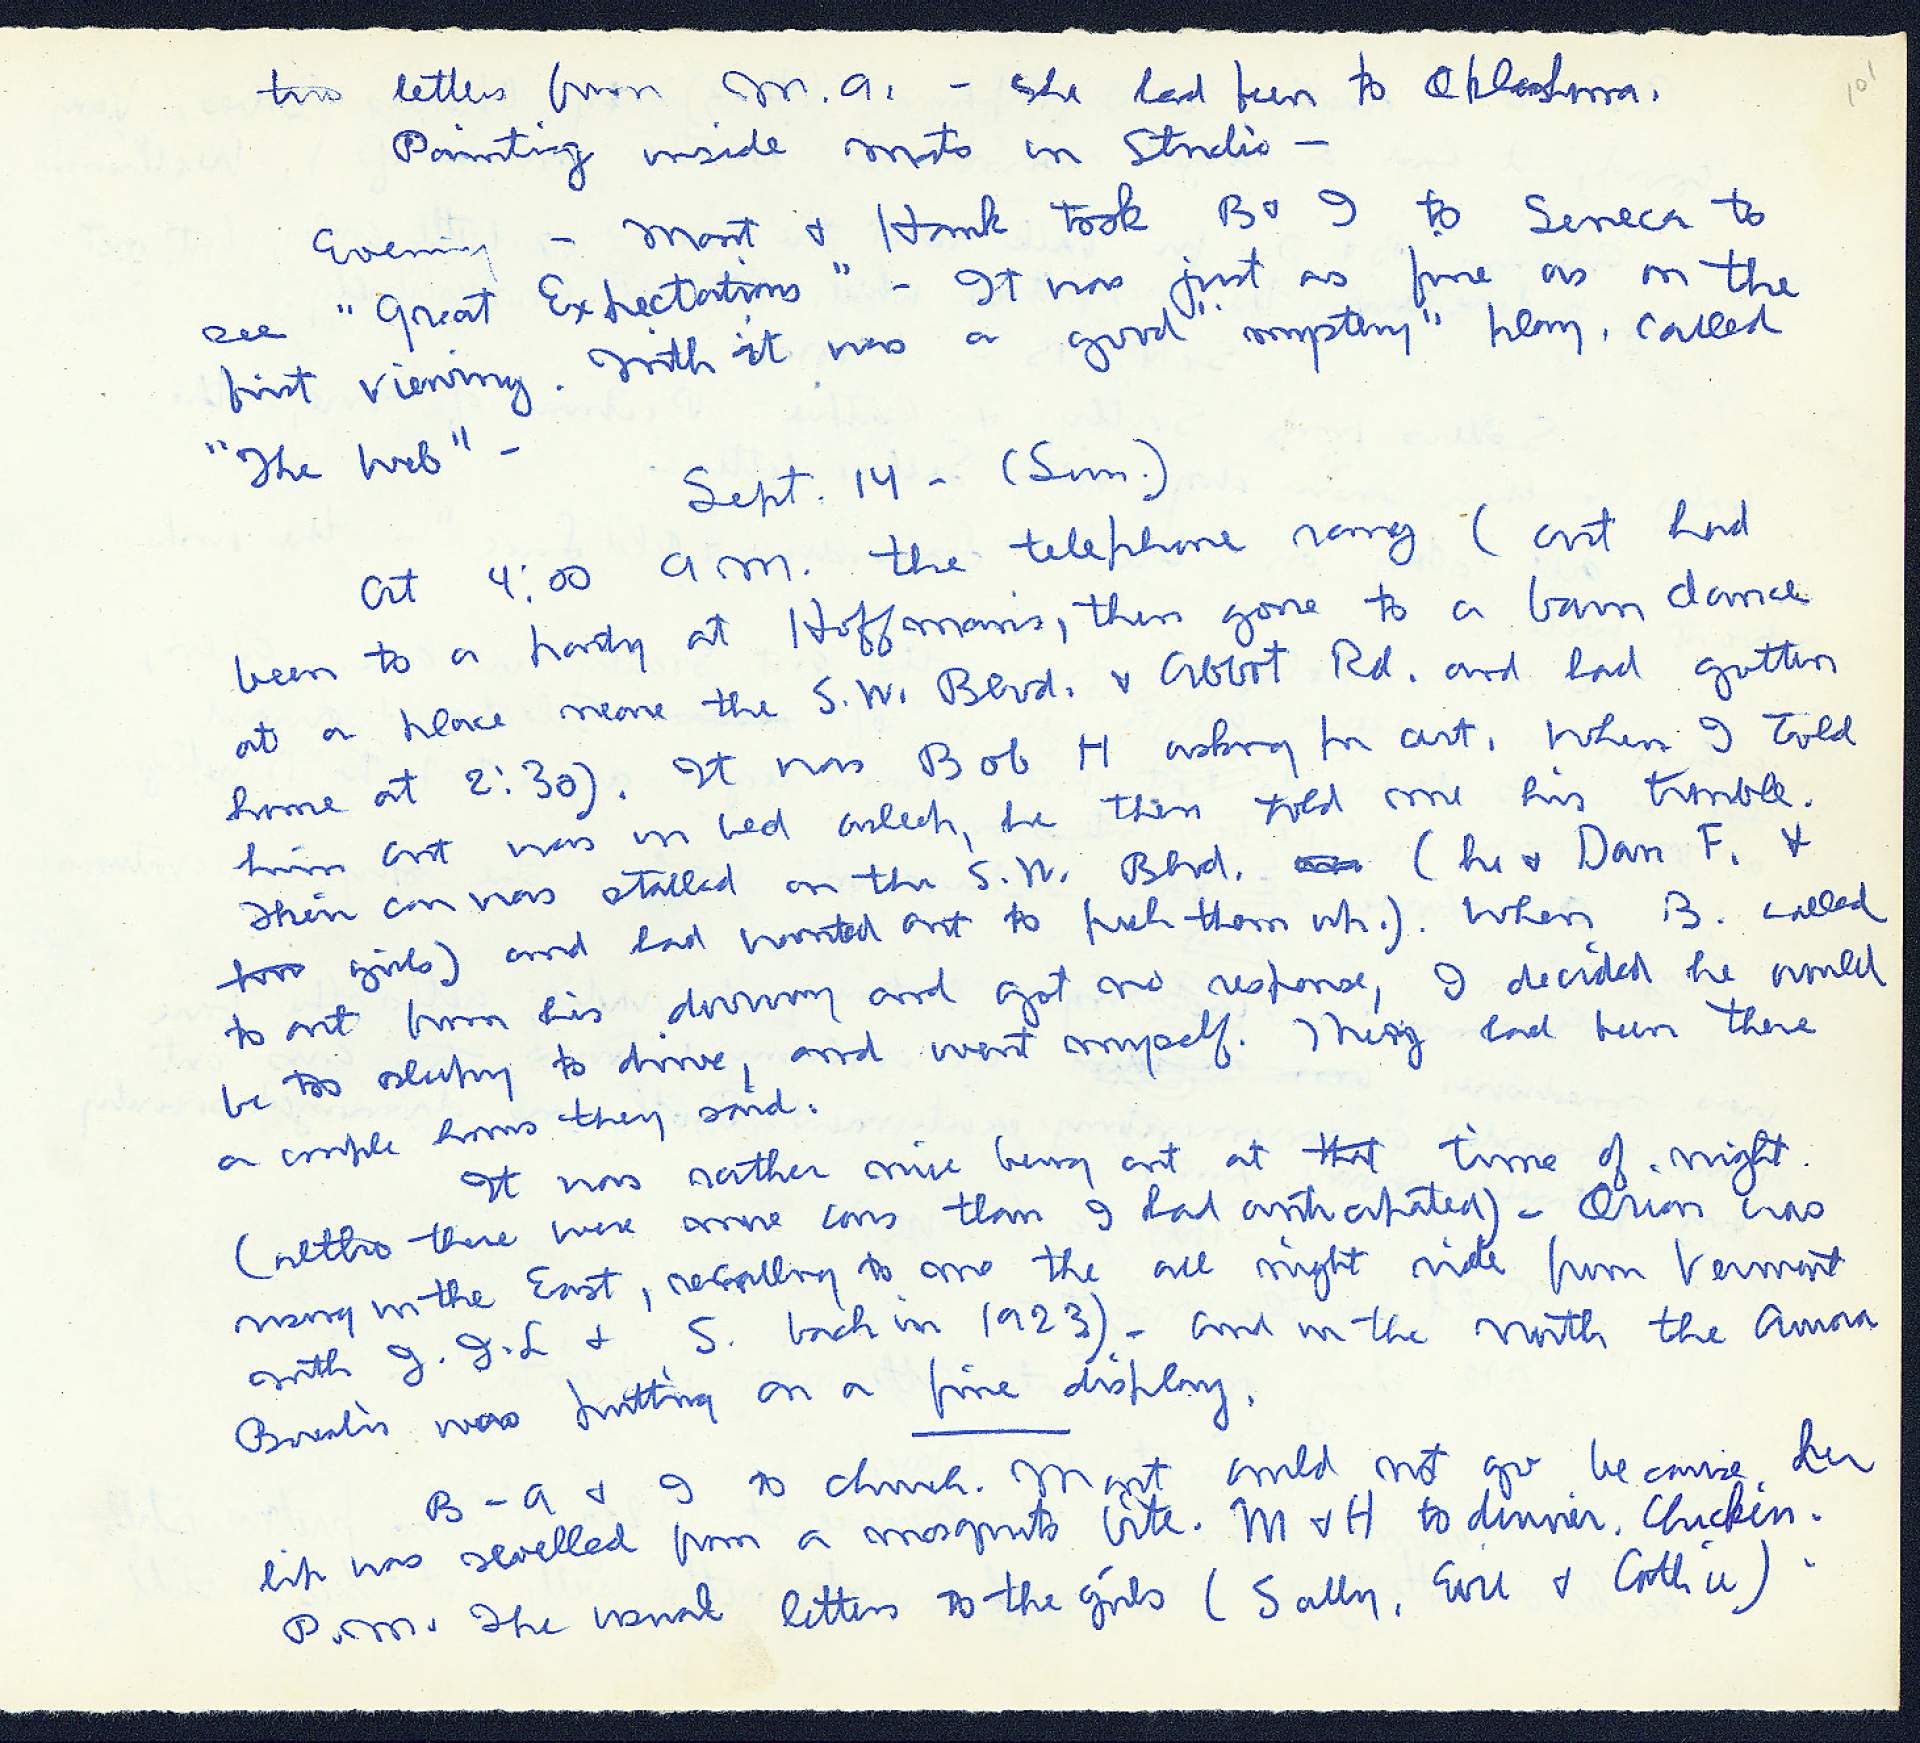 101
two letters from M.A. - she had been to Oklahoma.
Painting inside mats in Studio -
Evening - Mart & Hank took B & I to Seneca to
see "Great Expectations" - It was just as fine as on the
first viewing. With it was a good "mystery" play, called
"The Web" -
Sept. 14 - (Sun.)
At 4:00 A.M. the telephone rang (Art had
been to a party at Hoffman's, then gone to a barn dance
at a place near the S.W. Blvd. & Abbot Rd. and had gotten
home at 2:30). It was Bob H asking for Art. When I told
him Art was in bed asleep, he then told me his trouble.
Their car was stalled on the S.W. Blvd. (he & Dan F. &
two girls) and had wanted Art to push them up.). When B. called
to Art from his doorway and got no response, I decided he would
be too sleepy to drive, and went myself. They had been there
a couple hours they said.
It was rather nice being out at that time of night.
(altho there were more cars than I had anticipated) - Orion was
rising in the East, recalling to me the all night ride from Vermont
with J.J.L & S. back in 1923) - and in the north the Aurora
Borealis was putting on a fine display.
B - A & I to church. Mart could not go because her
lip was swelled from a mosquito bite. M & H to dinner. Chicken.
P.M. The usual letters to the girls (Sally, &